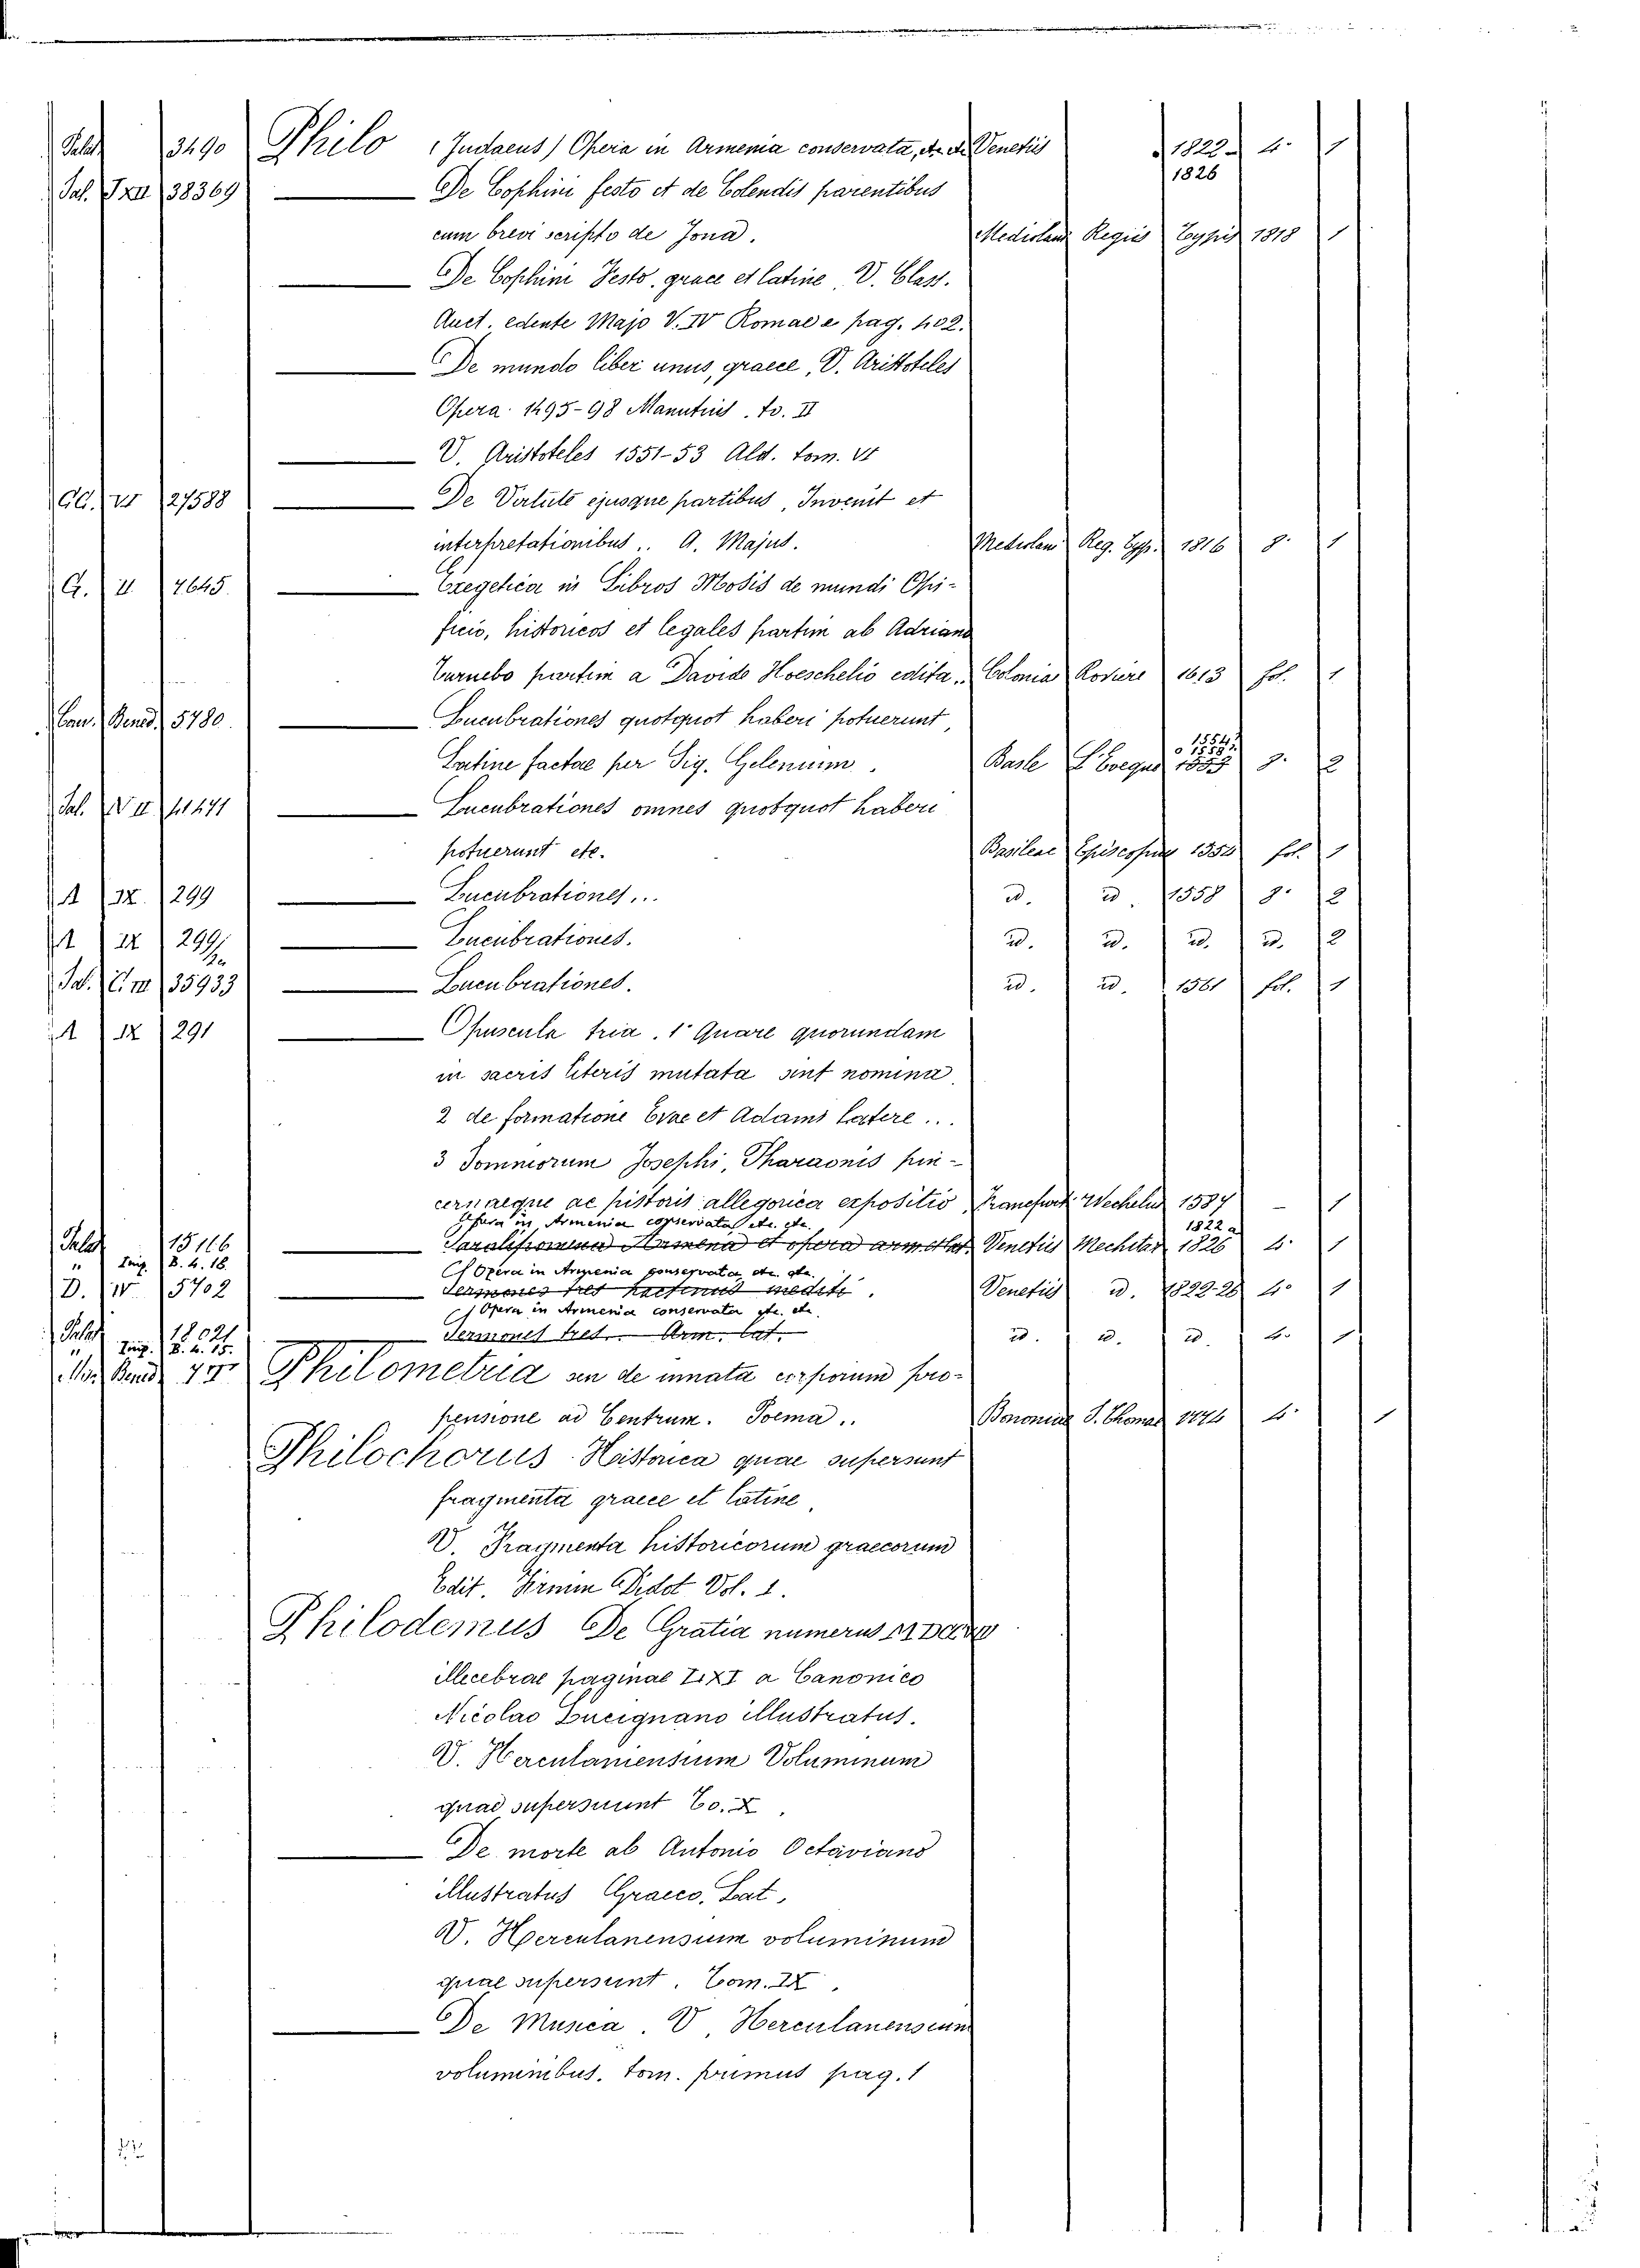 Palat 3490 Philo (Judaeus) Opera in Armenia conservata, etc. etc. Venetiis 1822 4° 1
1826
Pal. I XII 38369 De Cophini festo et de Colendis parentibus
cum brevi scripto de Jona. Mediolani Regiis Typis 1818 1
De Cophini Festo, graece et latine. V. Class.
Auct. edente Majo V. IV Romae a pag. 402.
De mundo liber unus, graece, V. Aristoteles
Opera 1495-98 Manutius. to. II
V. Aristoteles 1551-53 Ald. tom. VI
CC. VI 27588 De Virtute ejusque partibus, Invenit et
interpretationibus.. A. Majus. Mediolani Reg. Typ. 1816 8° 1
G. II 7645 Exegetica in Libros Mosis de mundi Opi-
ficio, historicos et legales partim ab Adriano
Turnebo partim a Davide Hoeschelio edita. Colonia Roviere 1613 fol. 1
Can. Bened. 5780 Lucubrationes quotquot haberi potuerunt,
Latine factae per Sig. Gelenium. Basle 1554 1558 8. 2
Pal. V II 41471 Lucubrationes omnes quotquot haberi
potuerunt etc. Basileae Episcopius 1554 fol. 1
A IX 299 Lucubrationes... id. id. 1558 8° 2
A IX 299/2 Lucubrationes. id. id. id. id. 2
Pal. C. III 35933 Lucubrationes. id. id. 1561 fol. 1
A IX 291 Opuscula tria. 1° Quare quorundam
in sacris literis mutata sint nomina
2 de formatione Evae et Adami latere...
3 Somniorum Josephi, Pharaonis pin-
cernaeque ac pistoris allegorica expositio Francfurti Wechelus 1587 - 1
Opera in Armenia conservata etc. etc. 1822 a
Palat 15116 Paralipomena Armena et opera arm. et lat. Venetiis Mechitar 1826 4° 1
" Leip. B. 4. 16
Opera in Armenia conservata etc. etc.
D. IV 5702 Sermones tres hactenus inediti. Venetiis id. 1822-26 4° 1
Opera in Armenia conservata etc. etc.
Palat 18021 Sermones tres... Arm. Lat. id. id. id. 4° 1
" Leip. B. 4. 15.
Bened. Philometria sen de innata corporum pro-
pensione ad Centrum. Poema.. Bononiae S. Thomas 4° 1
Philochorus Historica quae supersunt
fragmenta graece et latine,
V. Fragmenta historicorum graecorum
Edit. Firmin Didot Vol. 1.
Philodemus De Gratia numerus
illecebrae paginae a Canonico
Nicolao Lucignano illustratus.
V. Herculaniensium Voluminum
quae supersunt To. X.
De morte ab Antonio Octaviano
illustratus Graeco. Lat,
V. Herculanensium voluminum
quae supersunt. Tom. IX.
De Musica. V. Herculanensium
voluminibus. tom. primus pag. 1